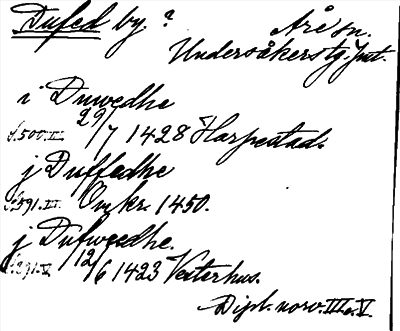 Dufed by? Åre sn.
Undersåkers tg. Jmt.
i Duwedhe
S. 500. III. 29/7 1428 Harpestad.
j Duffedhe
S. 391. III. Omkr. 1450.
j Dufweedhe.
S. 291. V. 12/6 1423 Vesterhus.
Dipl. norv. III o. V